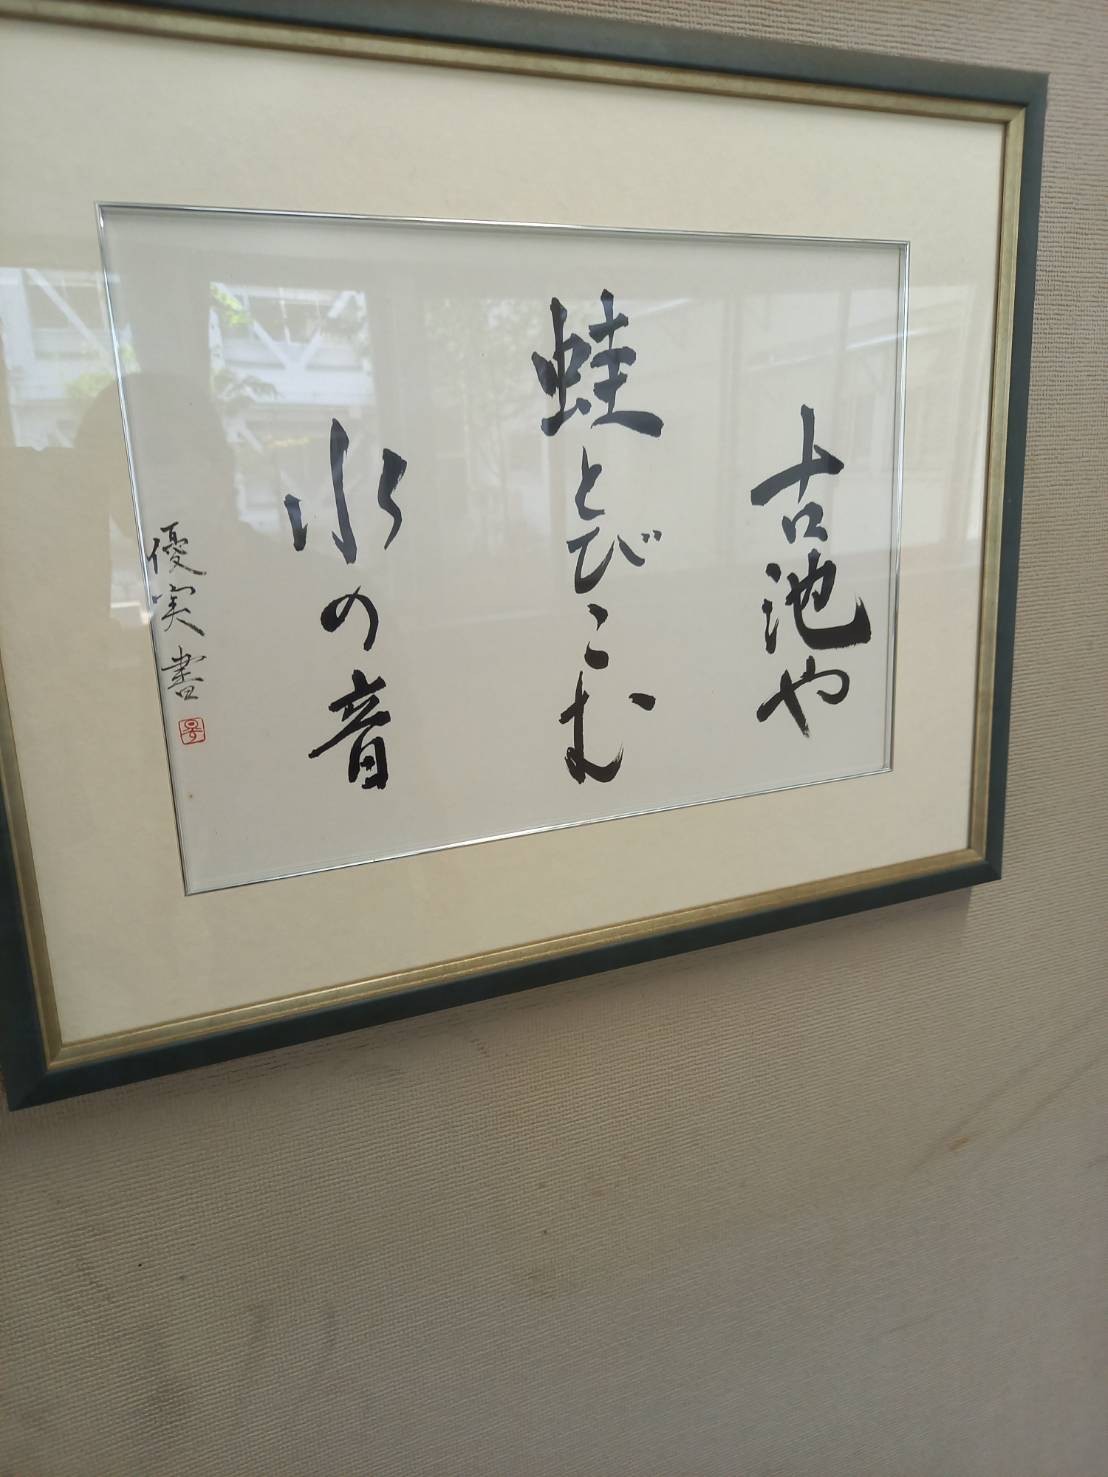 古池や
蛙とびこむ
水の音
優実書